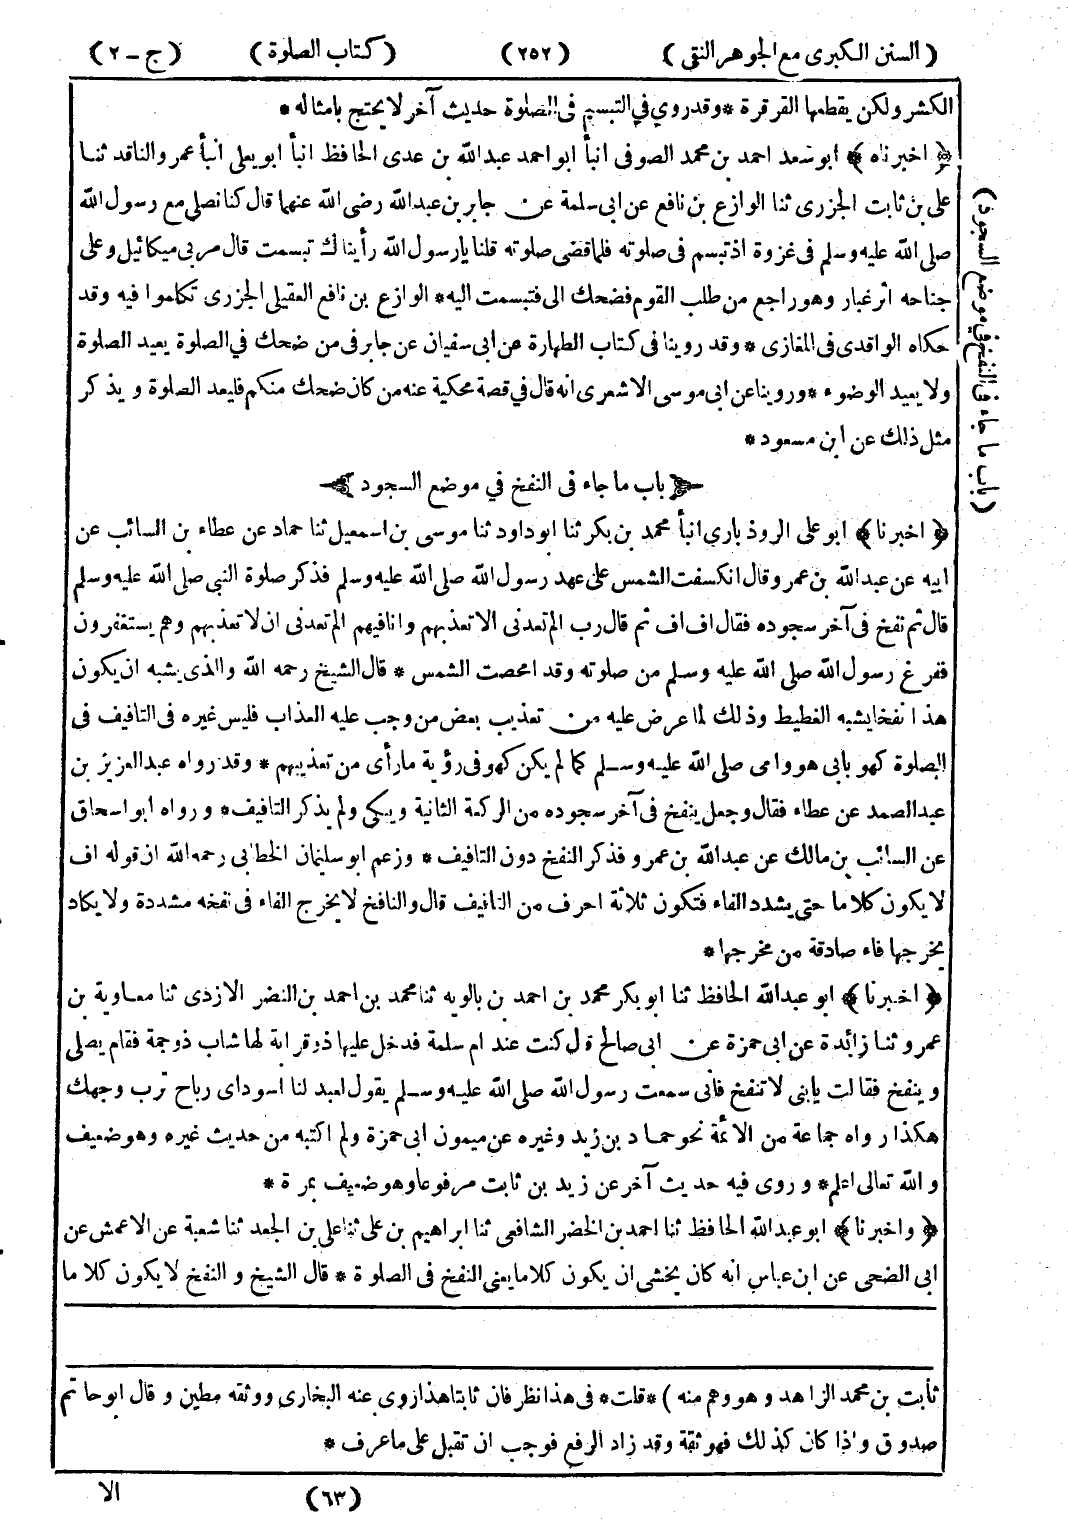 (السنن الكبرى مع الجوهر النقى) (٢٥٢) (كتاب الصلوة) (ج - ٢)
الكشر ولكن يقطعها القرقرة * وقد روي في التبسم فى الصلوة حديث آخر لا يحتج بامثاله *
﴿ اخبرناه ﴾ ابو سعد احمد بن محمد الصوفى انبأ ابو احمد عبدالله بن عدى الحافظ انبأ ابو يعلى انبأ عمرو الناقد ثنا
على بن ثابت الجزرى ثنا الوازع بن نافع عن ابى سلمة عن جابر بن عبدالله رضى الله عنهما قال كنا نصلى مع رسول الله
صلى الله عليه وسلم فى غزوة اذ تبسم فى صلوته فلما قضى صلوته قلنا يا رسول الله رأيناك تبسمت قال مر بى ميكائيل وعلى
جناحه اثر غبار وهو راجع من طلب القوم فضحك الى فتبسمت اليه * الوازع بن نافع العقيلى الجزرى تكلموا فيه وقد
حكاه الواقدى فى المغازى * وقد روينا فى كتاب الطهارة عن ابى سفيان عن جابر فى من ضحك في الصلوة يعيد الصلوة
ولا يعيد الوضوء * وروينا عن ابى موسى الاشعرى انه قال في قصة محكية عنه من كان ضحك منكم فليعد الصلوة و يذكر
مثل ذلك عن ابن مسعود *
باب ما جاء فى النفخ في موضع السجود
﴿ اخبرنا ﴾ ابو على الروذباري انبأ محمد بن بكر ثنا ابو داود ثنا موسى بن اسمعيل ثنا حماد عن عطاء بن السائب عن
ابيه عن عبدالله بن عمرو قال انكسفت الشمس على عهد رسول الله صلى الله عليه وسلم فذكر صلوة النبي صلى الله عليه وسلم
قال ثم نفخ فى آخر سجوده فقال اف اف ثم قال رب الم تعدنى الا تعذبهم وانا فيهم الم تعدنى ان لا تعذبهم وهم يستغفرون
ففرغ رسول الله صلى الله عليه وسلم من صلوته وقد امحصت الشمس * قال الشيخ رحمه الله والذى يشبه ان يكون
هذا نفخا يشبه الغطيط وذلك لما عرض عليه من تعذيب بعض من وجب عليه العذاب فليس غيره فى التافيف فى
الصلوة كهو بابى هو وامى صلى الله عليه وسلم كما لم يكن كهو فى رؤية ما رأى من تعذيبهم * وقد رواه عبدالعزيز بن
عبدالصمد عن عطاء فقال وجعل ينفخ فى آخر سجوده من الركعة الثانية ويبكى ولم يذكر التافيف * و رواه ابو اسحاق
عن السائب بن مالك عن عبدالله بن عمرو فذكر النفخ دون التافيف * وزعم ابو سليمان الخطابى رحمه الله ان قوله اف
لا يكون كلاما حتى يشدد الفاء فتكون ثلاثة احرف من التافيف قال والنافخ لا يخرج الفاء فى نفخه مشددة ولا يكاد
يخرجها فاء صادقة من مخرجها *
﴿ اخبرنا ﴾ ابو عبدالله الحافظ ثنا ابو بكر محمد بن احمد بن بالويه ثنا محمد بن احمد بن النضر الازدى ثنا معاوية بن
عمرو ثنا زائدة عن ابى حمزة عن ابى صالح قال كنت عند ام سلمة فدخل عليها ذو قرابة لها شاب ذو جمة فقام يصلى
وينفخ فقالت يا بنى لا تنفخ فانى سمعت رسول الله صلى الله عليه وسلم يقول لعبد لنا اسود اى رباح ترب وجهك
هكذا رواه جماعة من الائمة نحو حماد بن زيد وغيره عن ميمون ابى حمزة ولم اكتبه من حديث غيره وهو ضعيف
والله تعالى اعلم * و روى فيه حديث آخر عن زيد بن ثابت مرفوعا وهو ضعيف بمرة *
﴿ واخبرنا ﴾ ابو عبدالله الحافظ ثنا احمد بن الخضر الشافعى ثنا ابراهيم بن على ثنا على بن الجعد ثنا شعبة عن الاعمش عن
ابى الضحى عن ابن عباس انه كان يخشى ان يكون كلاما يعنى النفخ فى الصلوة * قال الشيخ و النفخ لا يكون كلاما
ثابت بن محمد الزاهد و هو وهم منه ) * قلت * فى هذا نظر فان ثابتا هذا روى عنه البخارى ووثقه مطين و قال ابو حاتم
صدوق واذا كان كذلك فهو ثقة وقد زاد الرفع فوجب ان تقبل على ما عرف *
(٦٣) الا
(باب ما جاء فى النفخ في موضع السجود)